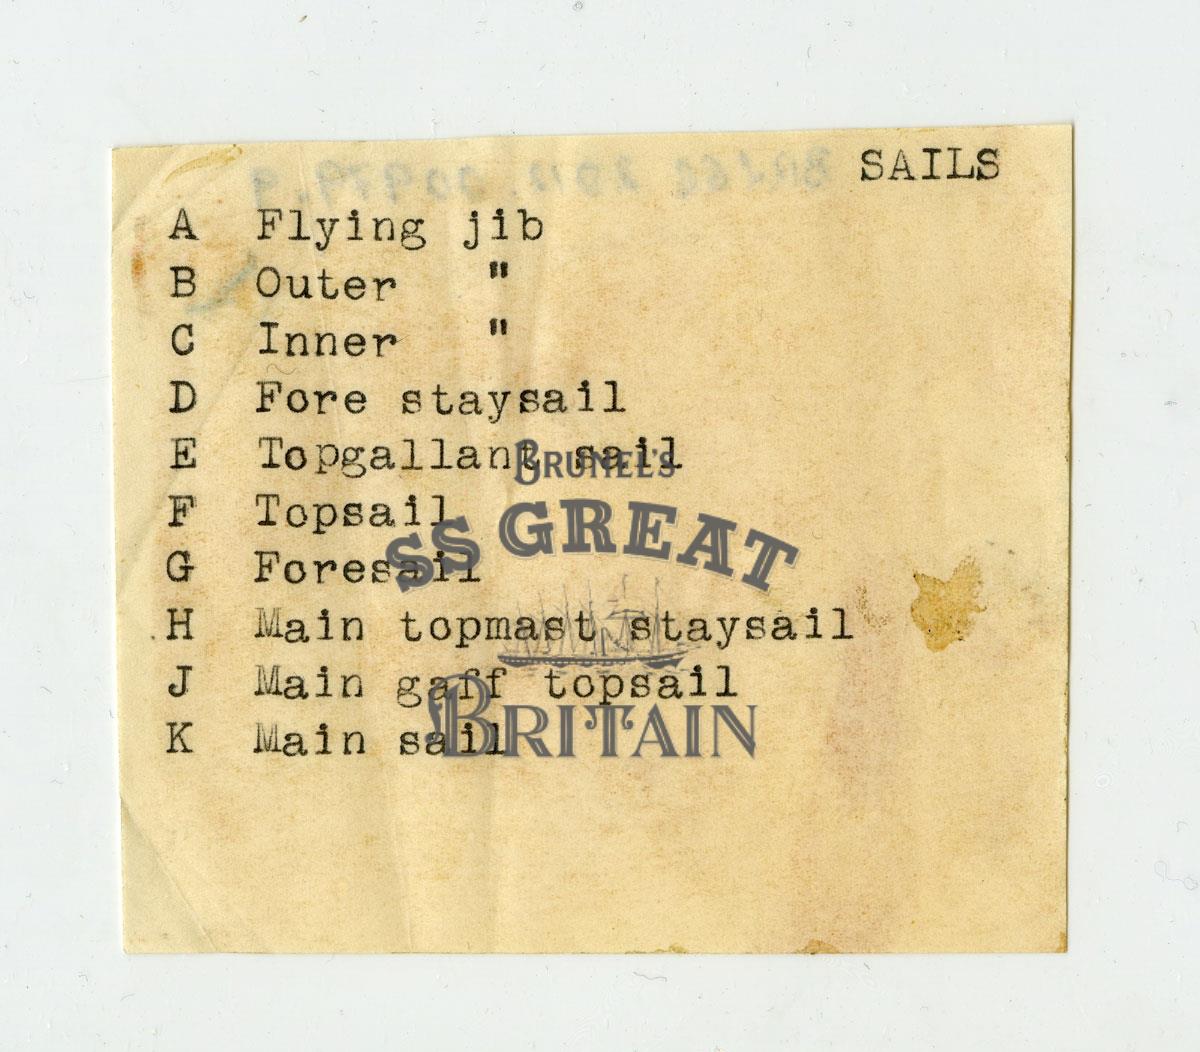 SAILS
A Flying jib
B Outer "
C Inner "
D Fore staysail
E Topgallant sail
F Topsail
G Foresail
H Main topmast staysail
J Main gaff topsail
K Main sail
BRUNEL'S
SS GREAT
BRITAIN